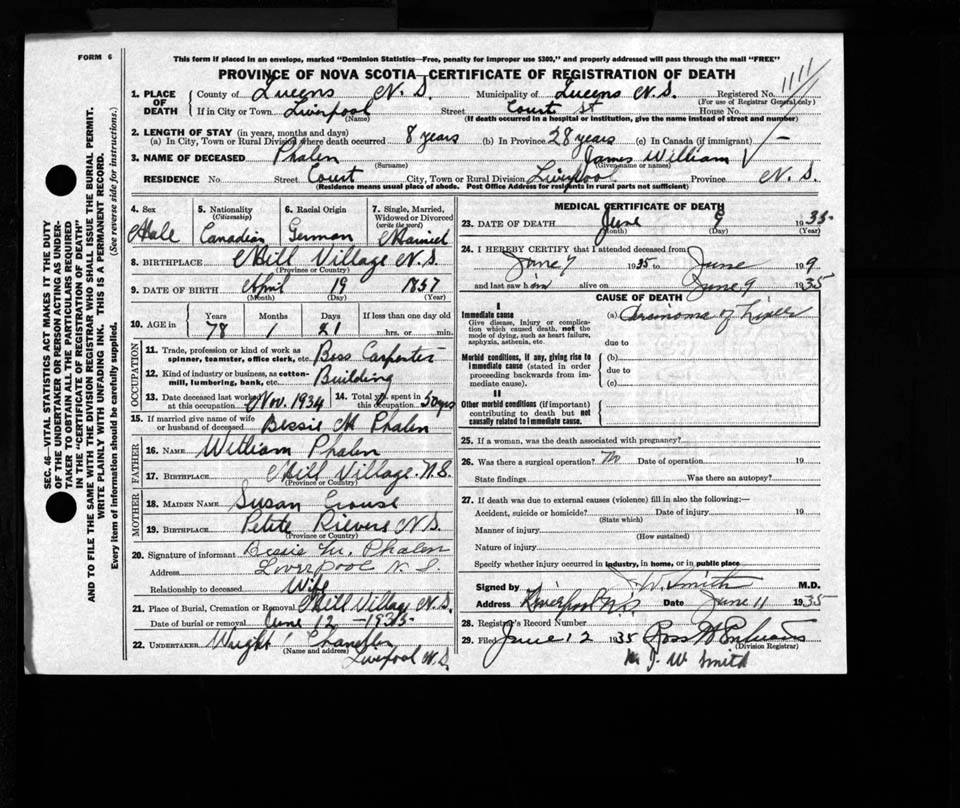 FORM 6
This form if placed in an envelope, marked "Dominion Statistics—Free, penalty for improper use $300," and properly addressed will pass through the mail "FREE"
PROVINCE OF NOVA SCOTIA—CERTIFICATE OF REGISTRATION OF DEATH
1. PLACE OF DEATH County of Queens N. S. Municipality of Queens N. S. Registered No.
(For use of Registrar General only)
If in City or Town Liverpool Street Court St House No.
(Name) (If death occurred in a hospital or institution, give the name instead of street and number)
2. LENGTH OF STAY (in years, months and days)
(a) In City, Town or Rural Division where death occurred 8 years (b) In Province 28 years (c) In Canada (if immigrant) —
3. NAME OF DECEASED Phalen James William
(Surname) (Given name or names)
RESIDENCE No. Street Court City, Town or Rural Division Liverpool Province N. S.
(Residence means usual place of abode. Post Office Address for residents in rural parts not sufficient)
4. Sex 5. Nationality (Citizenship) 6. Racial Origin 7. Single, Married, Widowed or Divorced (write the word)
Male Canadian German Married
8. BIRTHPLACE Mill Village N. S.
(Province or Country)
9. DATE OF BIRTH April 19 1857
(Month) (Day) (Year)
10. AGE in Years Months Days If less than one day old
78 1 21 hrs. or min.
OCCUPATION
11. Trade, profession or kind of work as spinner, teamster, office clerk, etc. Boss Carpenter
12. Kind of industry or business, as cotton-mill, lumbering, bank, etc. Building
13. Date deceased last worked at this occupation Nov. 1934 14. Total yrs spent in this occupation 50 yrs
15. If married give name of wife or husband of deceased Bessie M Phalen
FATHER
16. NAME William Phalen
17. BIRTHPLACE Mill Village N.S.
(Province or Country)
MOTHER
18. MAIDEN NAME Susan Crouse
19. BIRTHPLACE Petite Rievere N. S.
(Province or Country)
20. Signature of informant Bessie M. Phalen
Address Liverpool N. S.
Relationship to deceased Wife
21. Place of Burial, Cremation or Removal Mill Village N. S.
Date of burial or removal June 12 — 1935
22. UNDERTAKER Wright Chandler
(Name and address)
Liverpool N. S.
MEDICAL CERTIFICATE OF DEATH
23. DATE OF DEATH June 9 1935
(Month) (Day) (Year)
24. I HEREBY CERTIFY that I attended deceased from
June 7 1935 to June 19 9
and last saw him alive on June 9 1935
CAUSE OF DEATH
I
Immediate cause
Give disease, injury or complication which caused death, not the mode of dying, such as heart failure, asphyxia, asthenia, etc.
(a) Carcinoma of Liver
due to
Morbid conditions, if any, giving rise to immediate cause (stated in order proceeding backwards from immediate cause).
(b)
due to
(c)
II
Other morbid conditions (if important) contributing to death but not causally related to immediate cause.
25. If a woman, was the death associated with pregnancy?
26. Was there a surgical operation? No Date of operation 19
State findings Was there an autopsy?
27. If death was due to external causes (violence) fill in also the following:—
Accident, suicide or homicide? Date of injury 19
(State which)
Manner of injury
(How sustained)
Nature of injury
Specify whether injury occurred in industry, in home, or in public place
Signed by J W. Smith M.D.
Address Liverpool N.S. Date June 11 1935
28. Registrar's Record Number
29. Filed June 12 1935 Ross
(Division Registrar)
J. W Smith
SEC. 46—VITAL STATISTICS ACT MAKES IT THE DUTY
OF THE UNDERTAKER OR PERSON ACTING AS UNDER-
TAKER TO OBTAIN ALL THE PARTICULARS REQUIRED
IN THE "CERTIFICATE OF REGISTRATION OF DEATH"
AND TO FILE THE SAME WITH THE DIVISION REGISTRAR WHO SHALL ISSUE THE BURIAL PERMIT.
WRITE PLAINLY WITH UNFADING INK. THIS IS A PERMANENT RECORD.
Every item of information should be carefully supplied. (See reverse side for instructions.)